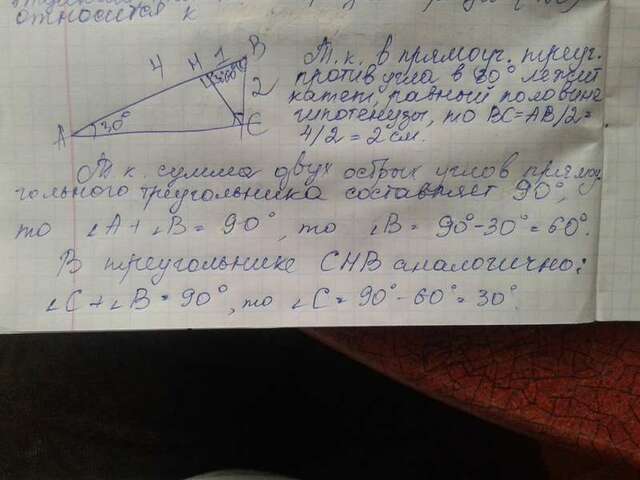 относится к
A
30°
4
H
1
B
2
C
Т.к. в прямоуг. треуг.
против угла в 30° лежит
катет равный половине
гипотенузы, то BC=AB/2=
4/2=2 см.
Т.к. сумма двух острых углов прямоу-
гольного треугольника составляет 90°,
то ∠A+∠B=90°, то ∠B=90°-30°=60°.
В треугольнике CHB аналогично:
∠C+∠B=90°, то ∠C=90°-60°=30°.